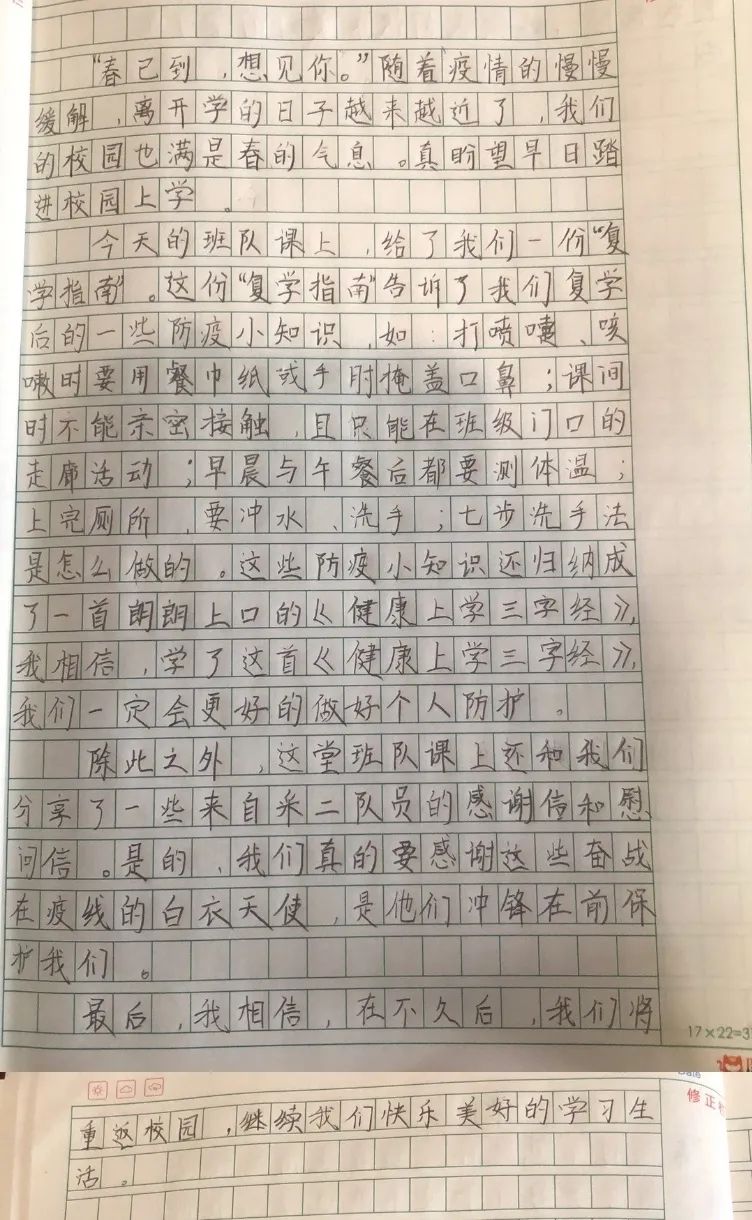 “春已到，想见你。”随着疫情的慢慢
缓解，离开学的日子越来越近了，我们
的校园也满是春的气息。真盼望早日踏
进校园上学。
今天的班队课上，给了我们一份“复
学指南”。这份“复学指南”告诉了我们复学
后的一些防疫小知识，如：打喷嚏、咳
嗽时要用餐巾纸或手肘掩盖口鼻；课间
时不能亲密接触，且只能在班级门口的
走廊活动；早晨与午餐后都要测体温；
上完厕所，要冲水、洗手；七步洗手法
是怎么做的。这些防疫小知识还归纳成
了一首朗朗上口的《健康上学三字经》，
我相信，学了这首《健康上学三字经》，
我们一定会更好的做好个人防护。
除此之外，这堂班队课上还和我们
分享了一些来自采二队员的感谢信和慰
问信。是的，我们真的要感谢这些奋战
在疫线的白衣天使，是他们冲锋在前保
护我们。
最后，我相信，在不久后，我们将
17×22=3
重返校园，继续我们快乐美好的学习生
活。
修正